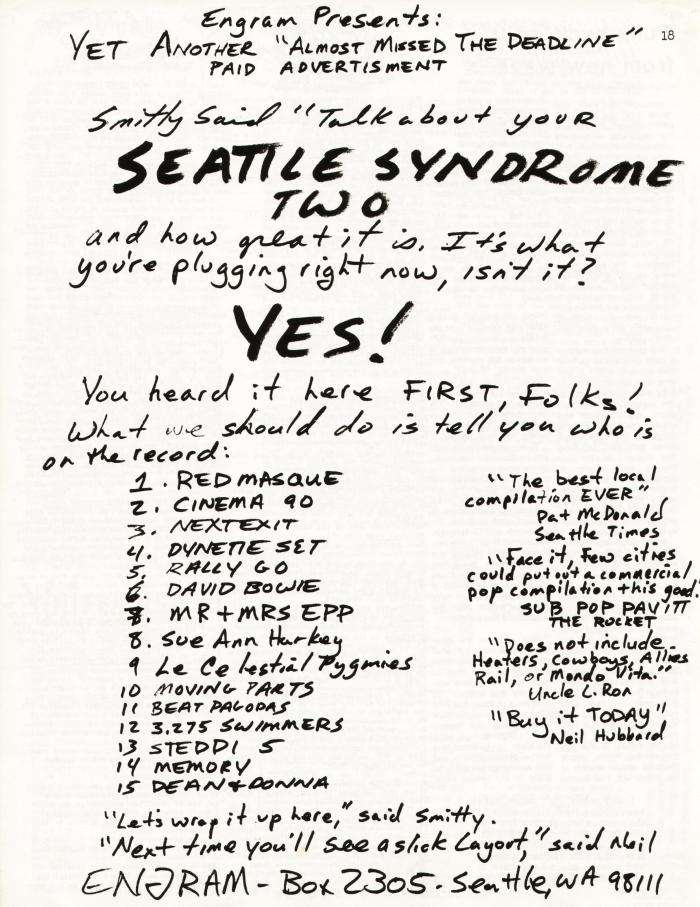 Engram Presents:
YET ANOTHER "ALMOST MISSED THE DEADLINE"
18
PAID ADVERTISMENT
Smitty Said "Talk about your
SEATTLE SYNDROME
TWO
and how great it is. It's what
you're plugging right now, isn't it?
YES!
You heard it here FIRST, Folks!
What we should do is tell you who is
on the record:
1. RED MASQUE
2. CINEMA 90
3. NEXT EXIT
4. DYNETTE SET
5. RALLY GO
6. DAVID BOWIE
7. MR + MRS EPP
8. Sue Ann Harkey
9 Le Celestial Pygmies
10 MOVING PARTS
11 BEAT PAGODAS
12 3.275 SWIMMERS
13 STEDDI 5
14 MEMORY
15 DEAN & DONNA
"The best local
compilation EVER"
Pat McDonald
Seattle Times
"Face it, Few cities
could put out a commercial
pop compilation this good."
SUB POP PAVITT
THE ROCKET
"Does not include
Heaters, Cowboys, Allies
Rail, or Mondo Vita."
Uncle L. Ron
"Buy it TODAY"
Neil Hubbard
"Let's wrap it up here," said Smitty.
"Next time you'll see a slick Layout," said Neil
ENGRAM - Box 2305 - Seattle, WA 98111